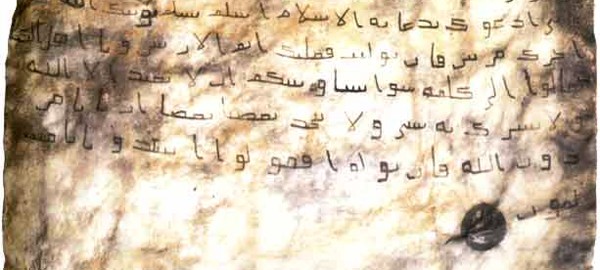 ادعوك بدعاية الاسلام اسلم تسلم يوتك الله
اجرك مرتين فان توليت فعليك اثم الاريسين و يا اهل الكتب
تعالوا الى كلمة سوا بيننا وبينكم ان لا نعبد الا الله
و لا نشرك به شيا و لا يتخذ بعضنا بعضا اربابا من
دون الله فان تولوا فقولوا اشهدوا بانا مسل
مون